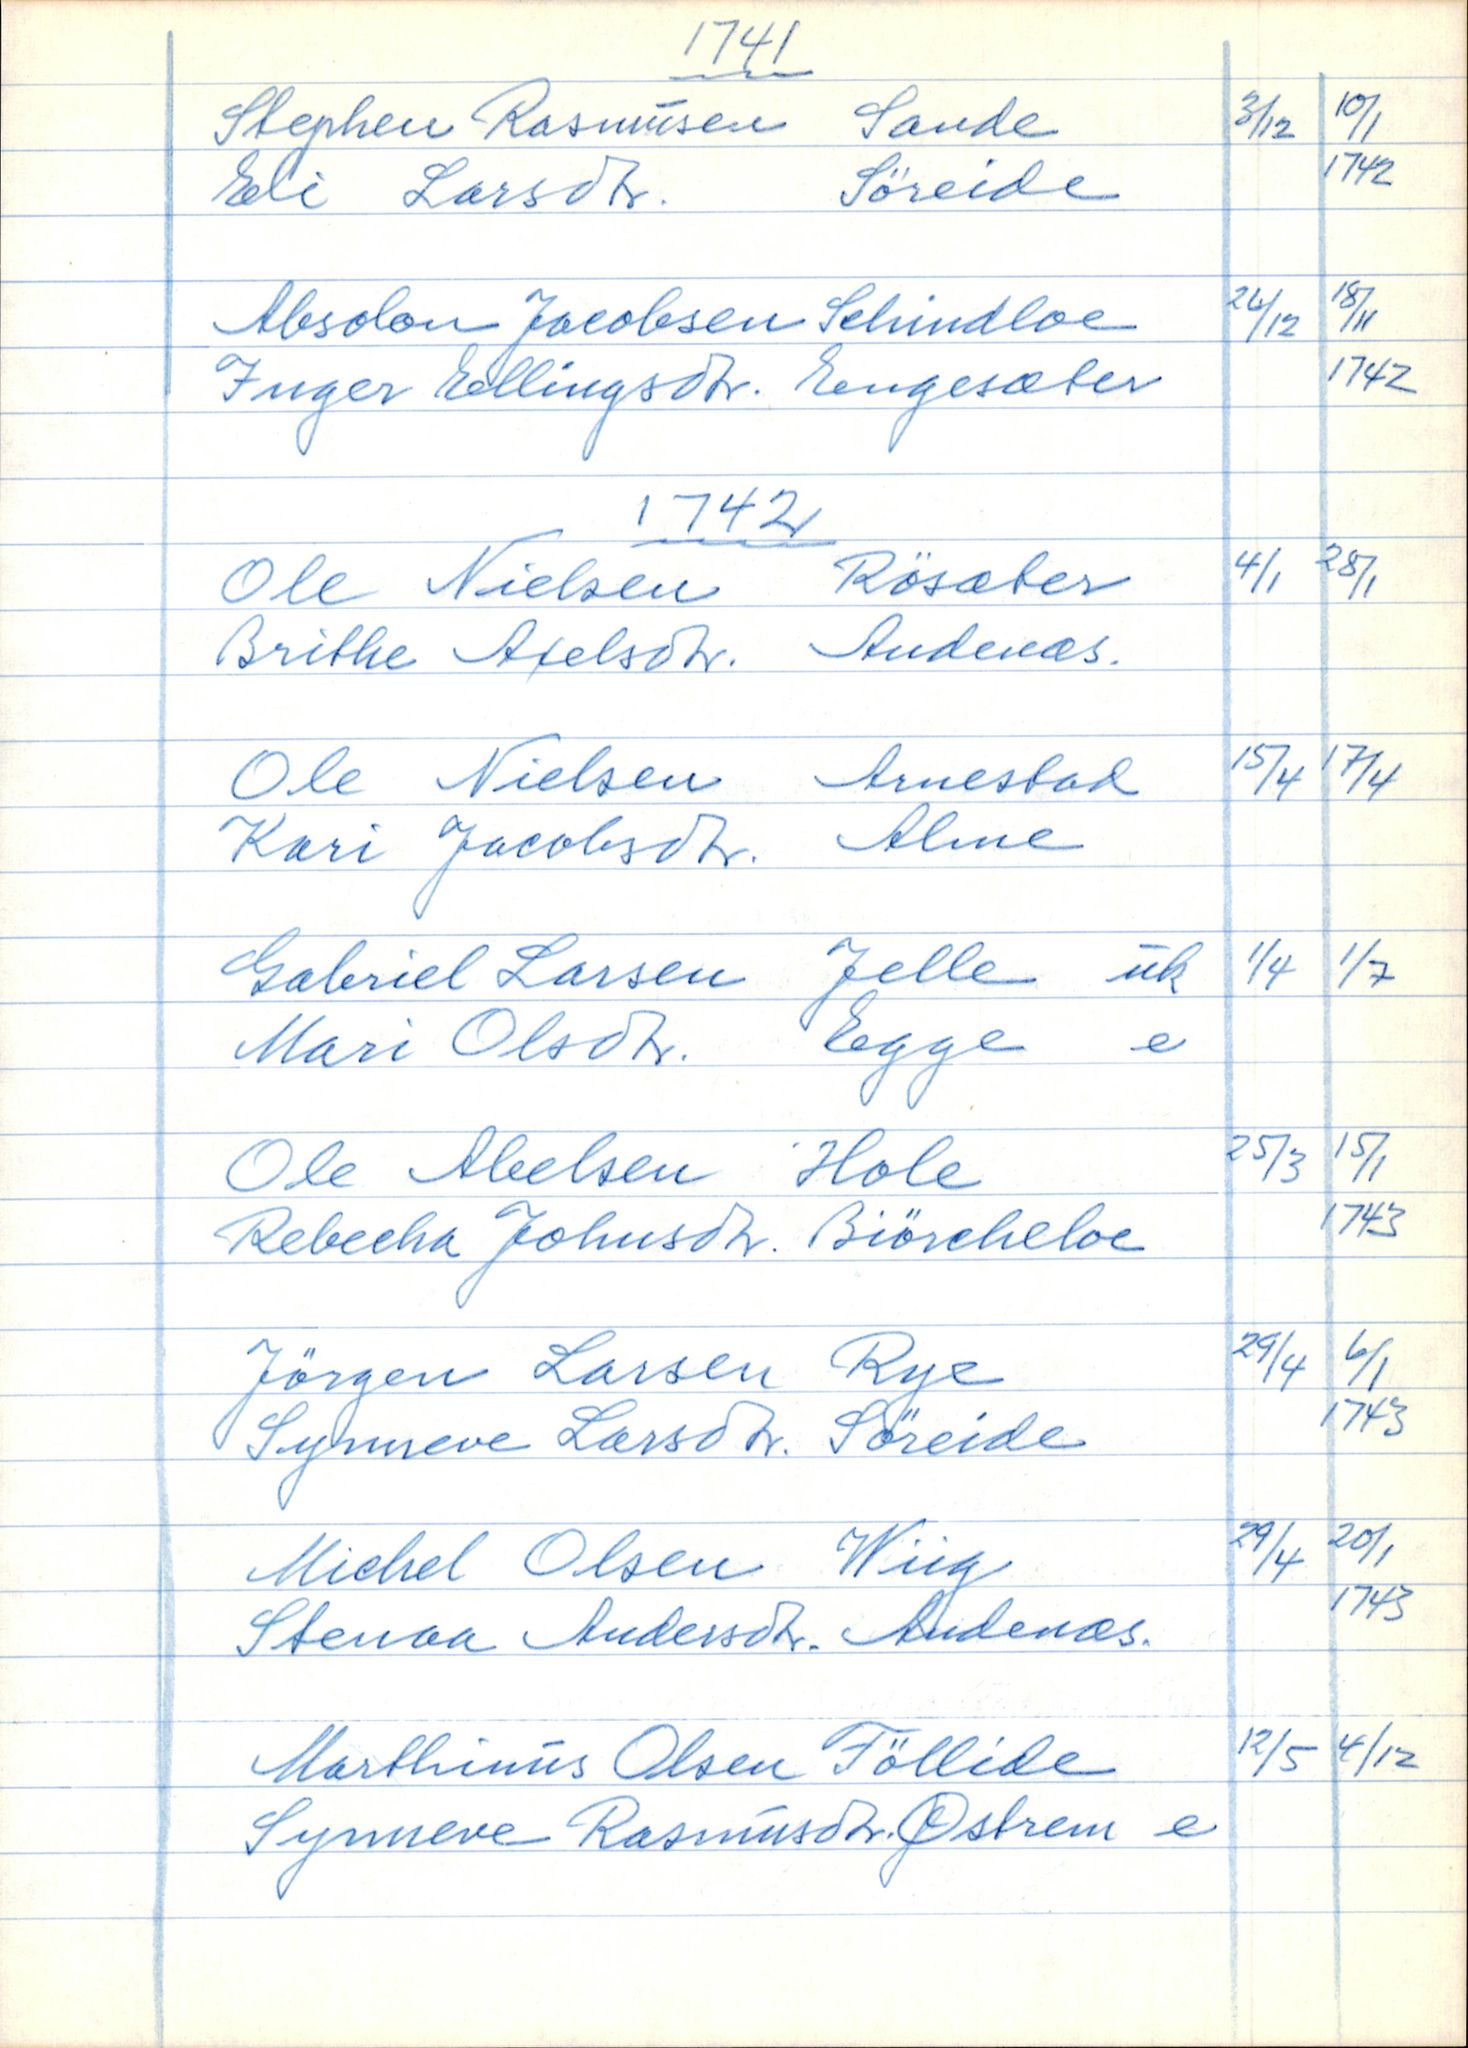 1741
Stephen Rasmusen Sande 3/12 10/1
Eli Larsdtr. Söreide 1742
Absolon Jacobsen Schindloe 26/12 18/11
Inger Ellingsdtr. Engesæter 1742
1742
Ole Nielsen Rösæter 4/1 28/1
Brithe Axelsdtr. Andenæs.
Ole Nielsen Arnestad 15/4 17/4
Kari Jacobsdtr. Alme
Gabriel Larsen Jelle uk 1/4 1/7
Mari Olsdtr. Egge e
Ole Abelsen Hole 25/3 15/1
Rebecha Johnsdtr. Biörcheloe 1743
Jörgen Larsen Rye 29/4 6/1
Synneve Larsdtr. Söreide 1743
Michel Olsen Wiig 29/4 20/1
Stenaa Andersdtr. Andenæs. 1743
Marthinus Olsen Föllide 12/5 4/12
Synneve Rasmusdtr. Østrem e